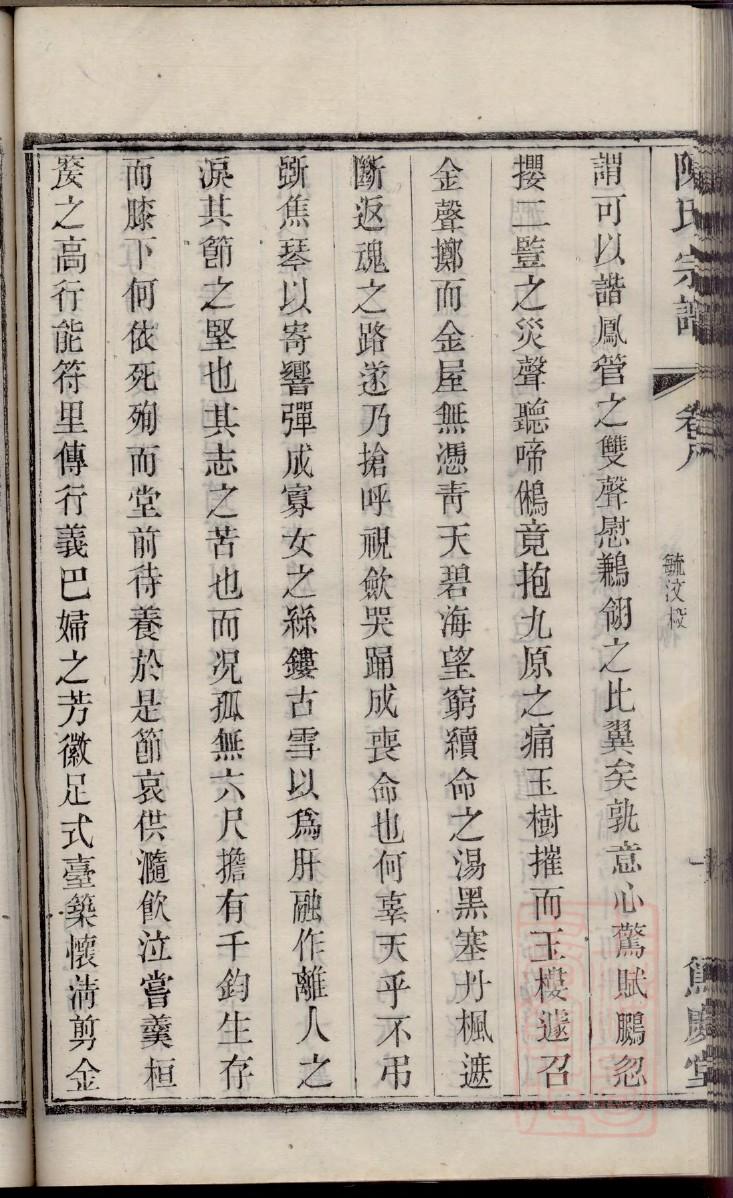 陳氏宗譜
卷八
毓汶杸
謂可以諧鳳管之雙聲慰鶼翎之比翼矣孰意心驚賦鵩忽
攖二豎之災聲聽啼鵂竟抱九原之痛玉樹摧而玉樓遽召
金聲擲而金屋無憑靑天碧海望窮續命之湯黑塞丹楓遮
斷返魂之路遂乃搶呼視歛哭踊成喪命也何辜天乎不弔
斲焦琴以寄響彈成寡女之絲鏤古雪以爲肝融作離人之
淚其節之堅也其志之苦也而况孤無六尺擔有千鈞生存
而膝下何依死殉而堂前待養於是節哀供瀡飮泣嘗羹桓
嫠之高行能符里傳行義巴婦之芳徽足式臺築懷淸剪金